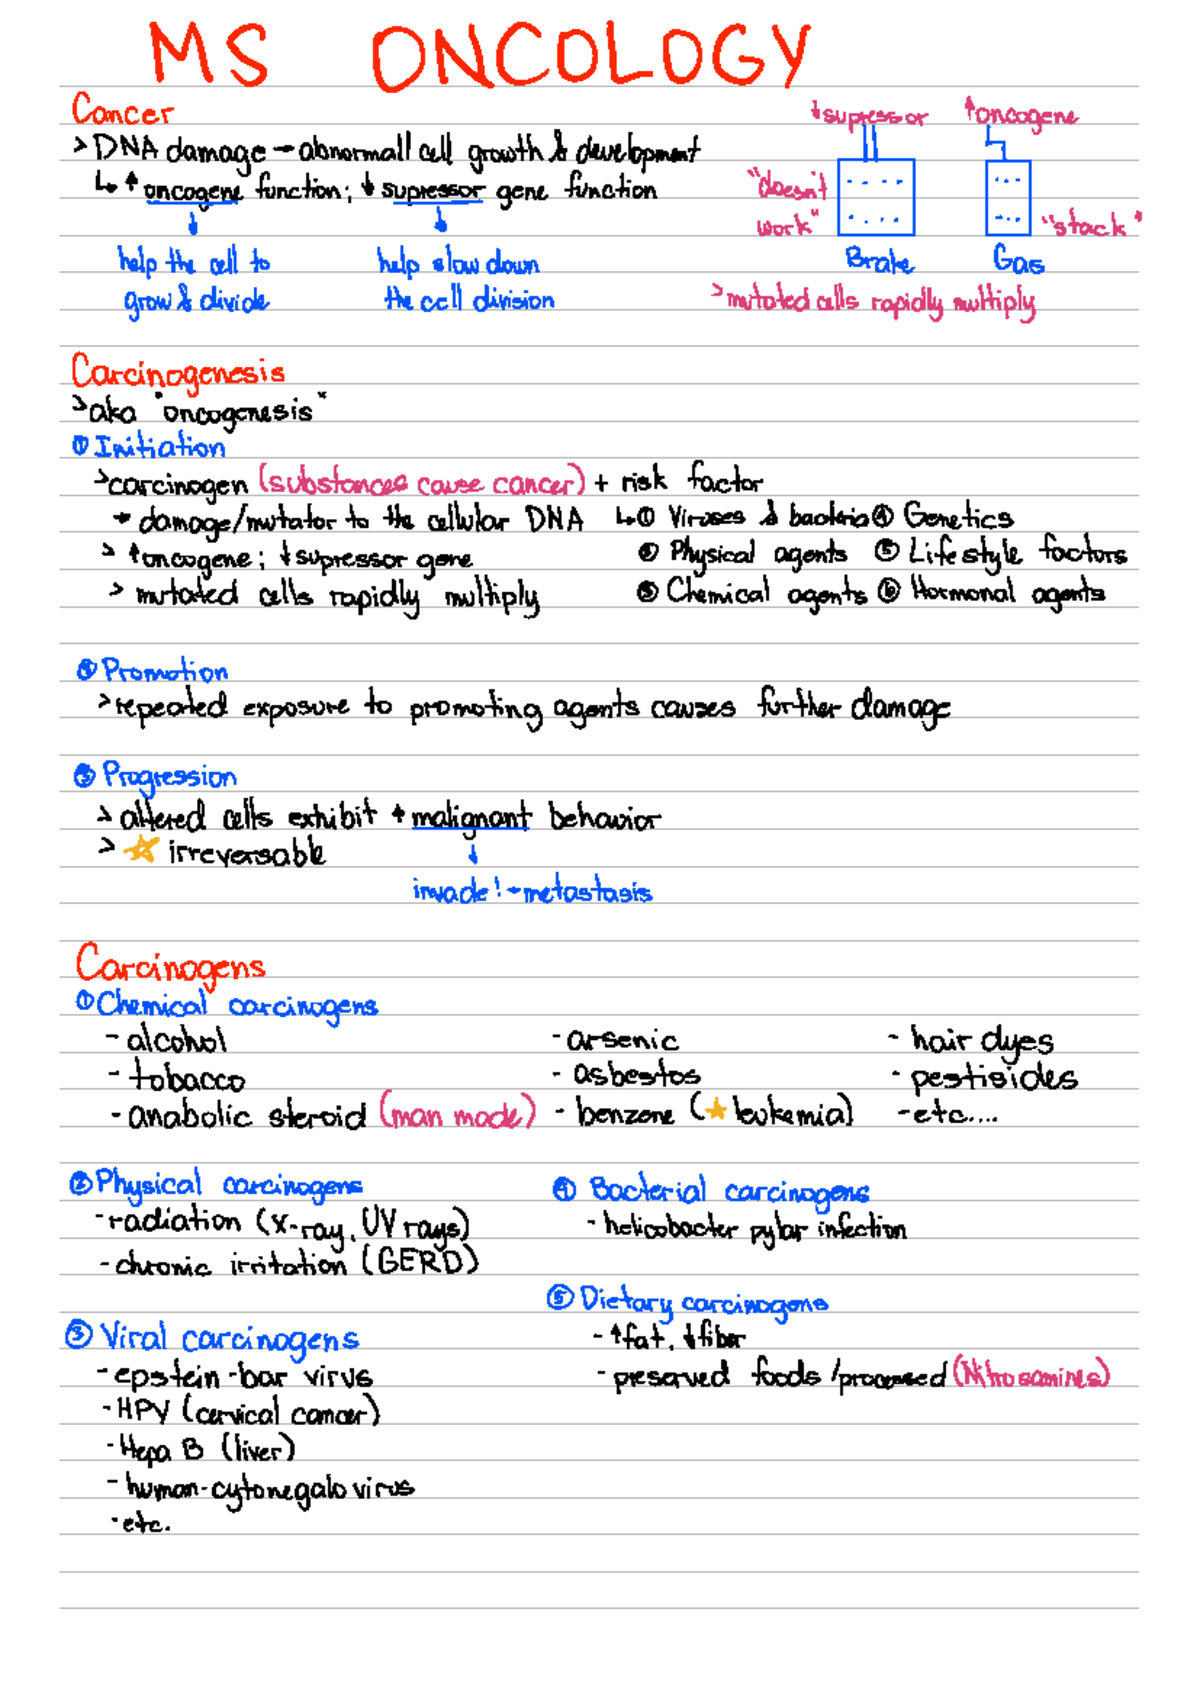 MS ONCOLOGY
Cancer
> DNA damage → abnormall cell growth & development
↳ ↑ oncogene function; ↓ supressor gene function
help the cell to
grow & divide
help slow down
the cell division
↓supressor
↑oncogene
"doesn't
work"
"stack"
Brake
Gas
>mutated cells rapidly multiply
Carcinogenesis
>aka "oncogenesis"
① Initiation
>carcinogen (substances cause cancer) + risk factor
→ damage/mutator to the cellular DNA
> ↑oncogene; ↓supressor gene
> mutated cells rapidly multiply
↳① Viruses & bacteria ④ Genetics
② Physical agents ⑤ Lifestyle factors
③ Chemical agents ⑥ Hormonal agents
② Promotion
>repeated exposure to promoting agents causes further damage
③ Progression
> altered cells exhibit ↑ malignant behavior
> ☆ irreversable
invade! → metastasis
Carcinogens
① Chemical carcinogens
- alcohol
- tobacco
- anabolic steroid (man made)
- arsenic
- asbestos
- benzene (★ leukemia)
- hair dyes
- pestisides
- etc....
② Physical carcinogens
- radiation (x-ray, UV rays)
- chronic irritation (GERD)
③ Viral carcinogens
- epstein-bar virus
- HPV (cervical cancer)
- Hepa B (liver)
- human-cytonegalo virus
- etc.
④ Bacterial carcinogens
- helicobacter pylor infection
⑤ Dietary carcinogens
- ↑fat, ↓fiber
- preserved foods /processed (Nitrosamines)